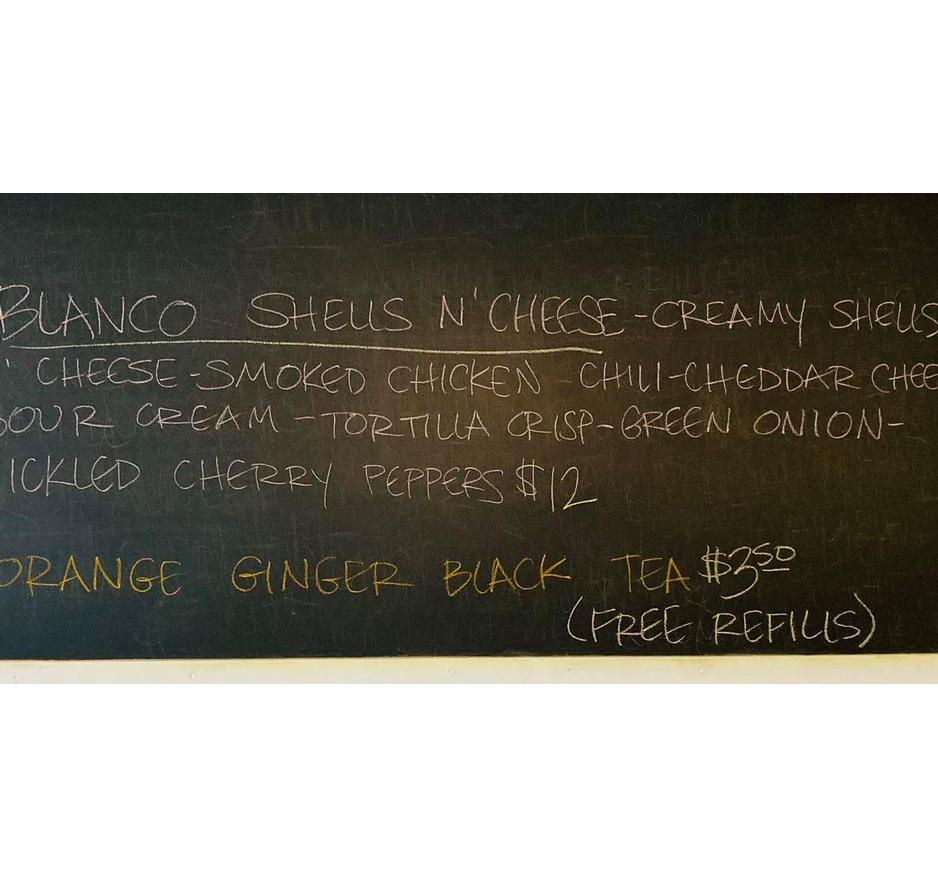 BLANCO SHELLS N' CHEESE - CREAMY SHELLS
' CHEESE - SMOKED CHICKEN - CHILI - CHEDDAR CHEE
OUR CREAM - TORTILLA CRISP - GREEN ONION -
ICKLED CHERRY PEPPERS $12
ORANGE GINGER BLACK TEA $3.50
(FREE REFILLS)